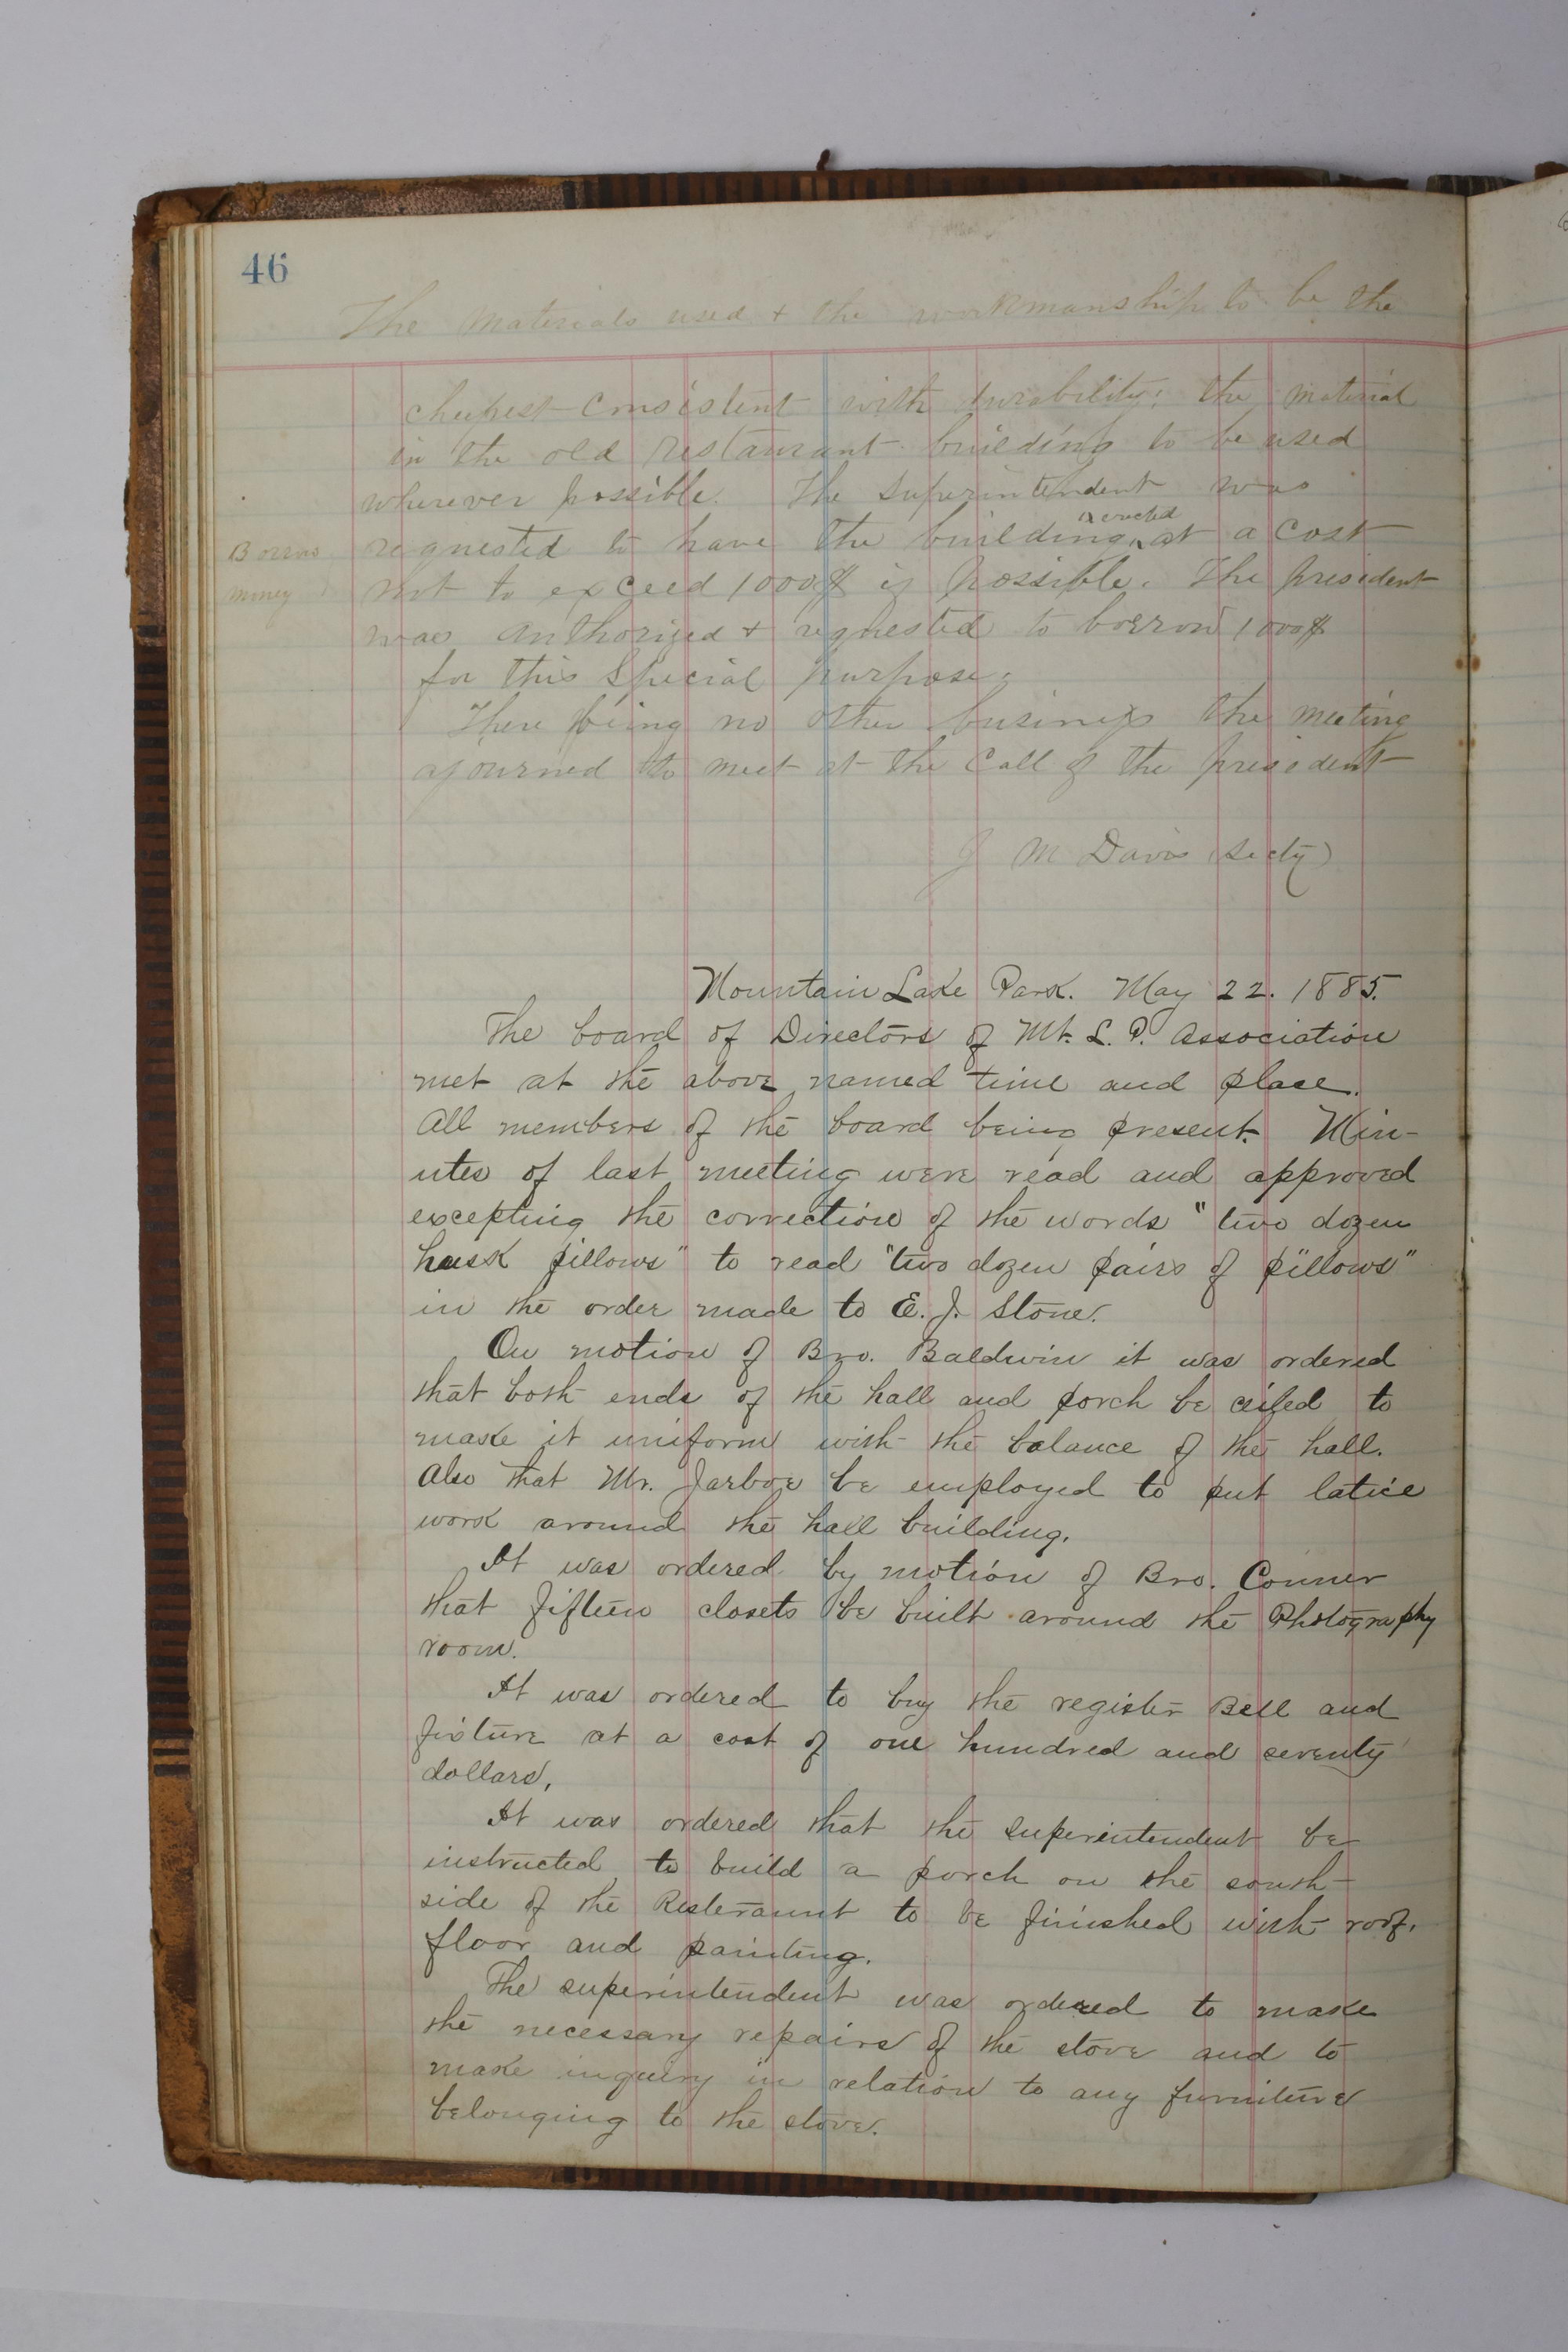 46
The Materials used + the workmanship to be the
cheapest consistent with durability; the material
in the old restaurant building to be used
wherever possible. The Superintendent was
erected
Borrow requested to have the building ^ at a Cost
money not to exceed 1000$ if possible. The president
was authorized + requested to borrow 1000$
for this special purpose.
There being no other business the meeting
ajourned to meet at the Call of the president
J M Davis (Secty)
Mountain Lake Park. May 22. 1885.
The board of Directors of Mt. L. P. Association
met at the above named time and place.
All members of the board being present. Min-
utes of last meeting were read and approved
excepting the correction of the words "two dozen
husk pillows" to read "two dozen pairs of pillows"
in the order made to E. J. Stone.
On motion of Bro. Baldwin it was ordered
that both ends of the hall and porch be ceiled to
make it uniform with the balance of the hall.
Also that Mr. Jarboe be employed to put latice
work around the hall building.
It was ordered by motion of Bro. Conner
that fifteen closets be built around the Photography
room.
It was ordered to buy the register Bell and
fixture at a cost of one hundred and seventy
dollars,
It was ordered that the superintendent be
instructed to build a porch on the south
side of the Resteraunt to be finished with roof,
floor and painting.
The superintendent was ordered to make
the necessary repairs of the stove and to
make inquiry in relation to any furniture
belonging to the stove.